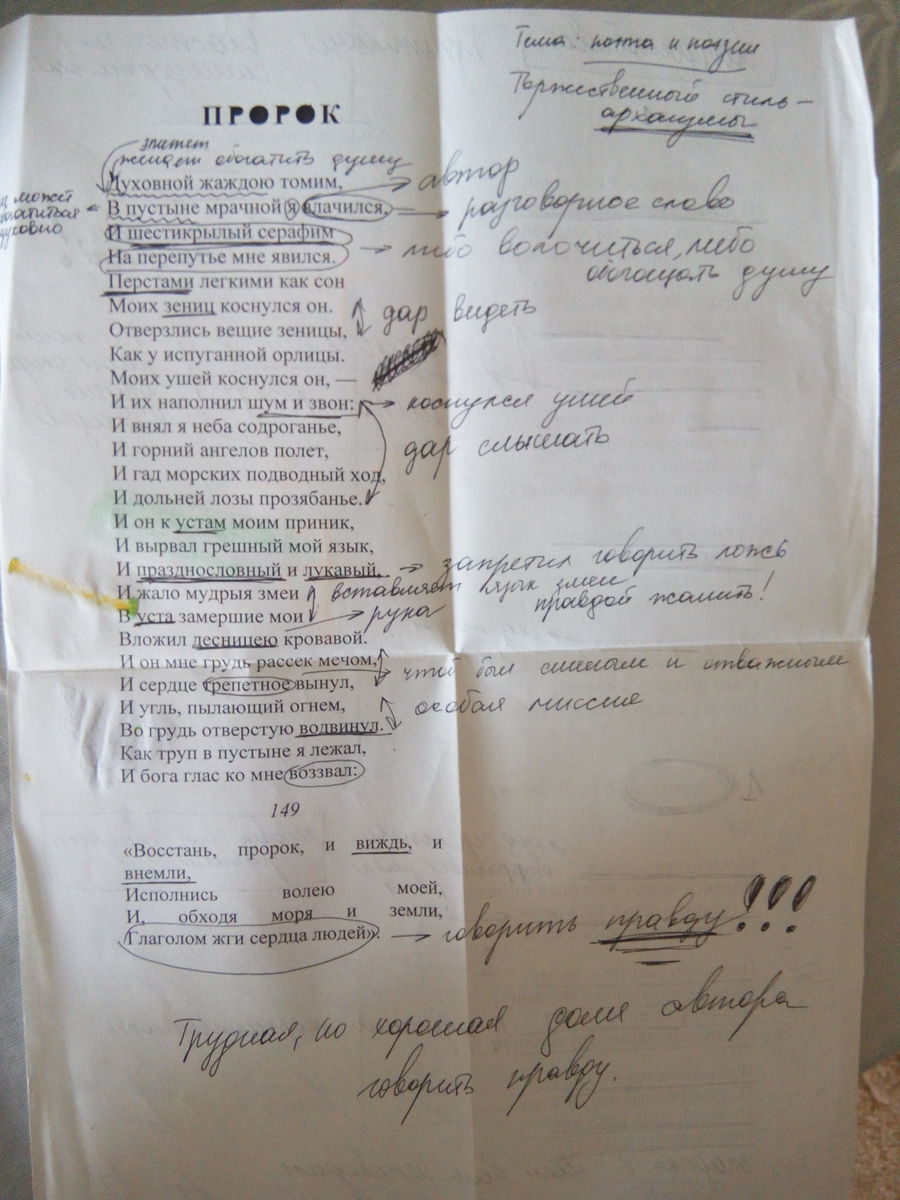 Тема: поэта и поэзии
Торжественный стиль –
архаизмы
ПРОРОК
эпитет
желает обогатить душу
Духовной жаждою томим, → автор
может
обогатиться
духовно
В пустыне мрачной я влачился, → разговорное слово
И шестикрылый серафим
На перепутье мне явился. → либо волочиться, либо
обогащать душу
Перстами легкими как сон
Моих зениц коснулся он.
дар видеть
Отверзлись вещие зеницы,
Как у испуганной орлицы.
Моих ушей коснулся он, —
И их наполнил шум и звон: → коснулся ушей
И внял я неба содроганье,
дар слышать
И горний ангелов полет,
И гад морских подводный ход,
И дольней лозы прозябанье.
И он к устам моим приник,
И вырвал грешный мой язык,
И празднословный и лукавый, → запретил говорить ложь
И жало мудрыя змеи вставляет язык змеи
правдой жалить!
В уста замершие мои → рука
Вложил десницею кровавой.
И он мне грудь рассек мечом,
→ чтоб был смелым и отважным
И сердце трепетное вынул,
И угль, пылающий огнем,
особая миссия
Во грудь отверстую водвинул.
Как труп в пустыне я лежал,
И бога глас ко мне воззвал:
149
«Восстань, пророк, и виждь, и
внемли,
Исполнись волею моей,
И, обходя моря и земли,
Глаголом жги сердца людей». → говорить правду!!!
Трудная, но хорошая доля автора
говорить правду.